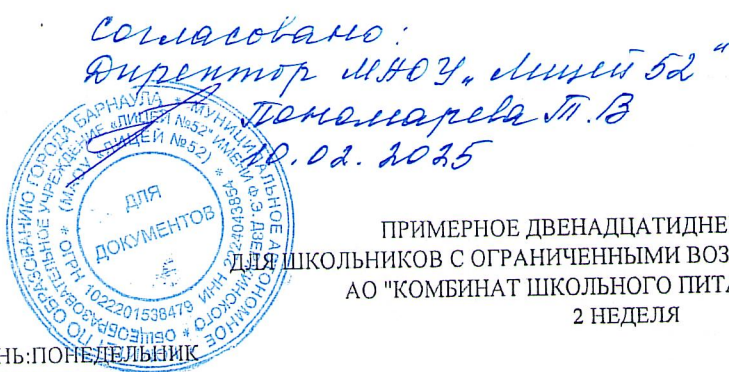 Согласовано:
Директор МАОУ „Лицей 52“
Пономарева Т.В
10.02.2025
ПО ОБРАЗОВАНИЮ ГОРОДА БАРНАУЛА * МУНИЦИПАЛЬНОЕ АВТОНОМНОЕ
ОБЩЕОБРАЗОВАТЕЛЬНОЕ УЧРЕЖДЕНИЕ «ЛИЦЕЙ №52" ИМЕНИ Ф.Э. ДЗЕРЖИНСКОГО *
(МАОУ «ЛИЦЕЙ №52) *
ОГРН 1022201538479 ИНН
ДЛЯ
ДОКУМЕНТОВ
ПРИМЕРНОЕ ДВЕНАДЦАТИДНЕ
ДЛЯ ШКОЛЬНИКОВ С ОГРАНИЧЕННЫМИ ВОЗ
АО "КОМБИНАТ ШКОЛЬНОГО ПИТА
2 НЕДЕЛЯ
НЬ:ПОНЕДЕЛЬНИК